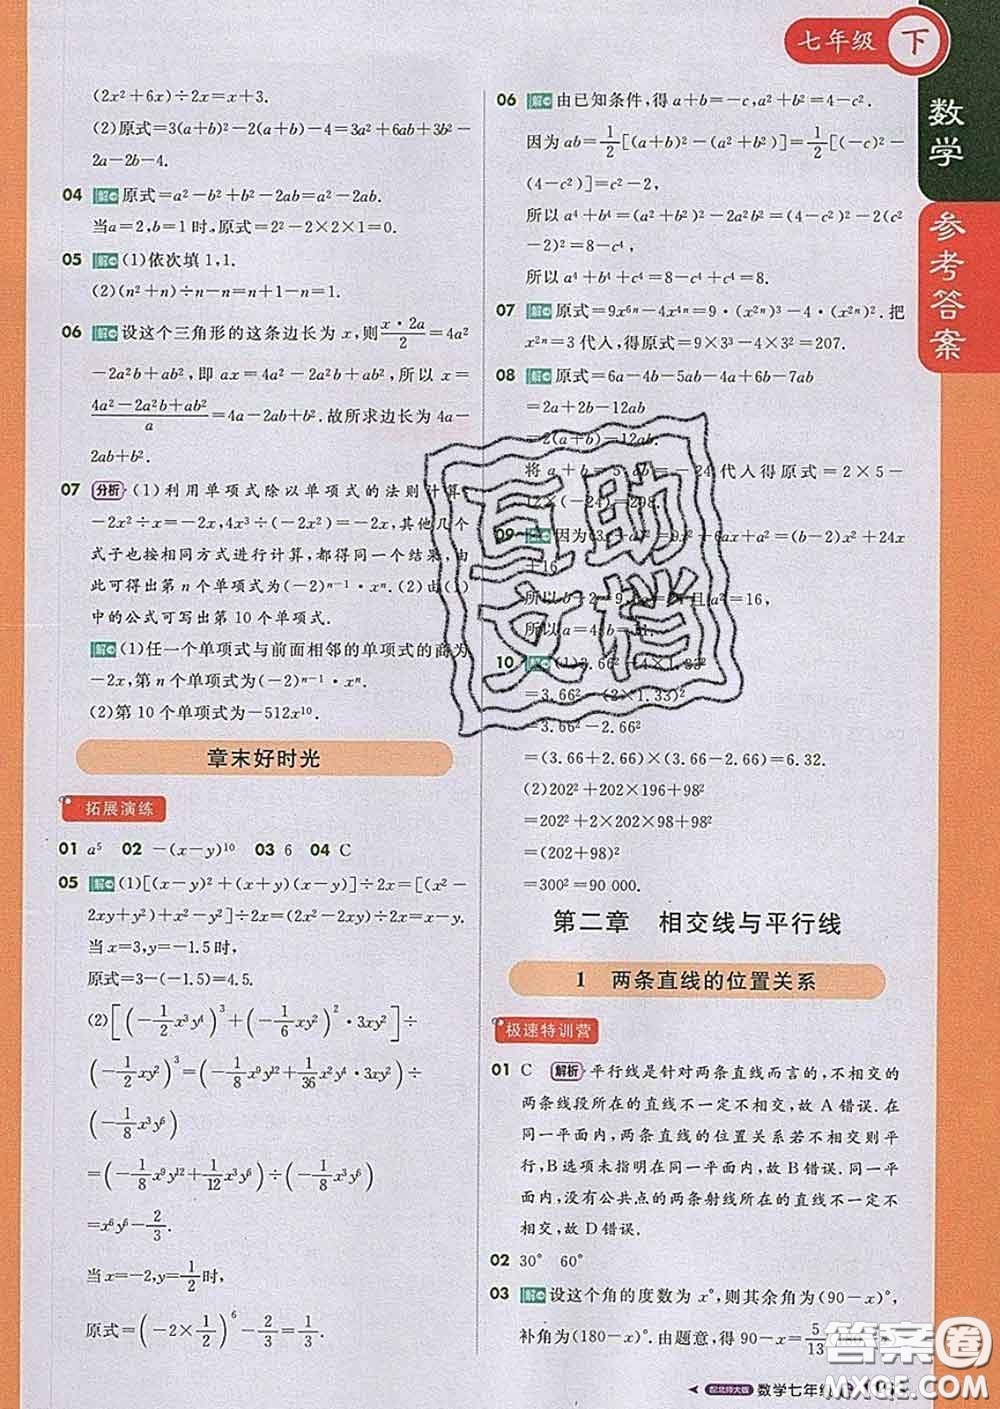 七年级 下
数学
参考答案
(2x²+6x)÷2x=x+3.
(2)原式=3(a+b)²-2(a+b)-4=3a²+6ab+3b²-
2a-2b-4.
04 解 原式=a²-b²+b²-2ab=a²-2ab.
当a=2,b=1时,原式=2²-2×2×1=0.
05 解 (1)依次填1,1.
(2)(n²+n)÷n-n=n+1-n=1.
06 解 设这个三角形的这条边长为 x,则x·2a/2=4a²
-2a²b+ab²,即 ax=4a²-2a²b+ab²,所以 x=
4a²-2a²b+ab²/a=4a-2ab+b².故所求边长为 4a-
2ab+b².
07 分析 (1)利用单项式除以单项式的法则计算
-2x²÷x=-2x,4x³÷(-2x²)=-2x,其他几个
式子也按相同方式进行计算,都得同一个结果,由
此可得出第 n 个单项式为(-2)ⁿ⁻¹·xⁿ.(2)由(1)
中的公式可写出第 10 个单项式.
解 (1)任一个单项式与前面相邻的单项式的商为
-2x,第 n 个单项式为(-2)ⁿ⁻¹·xⁿ.
(2)第 10 个单项式为-512x¹⁰.
章末好时光
拓展演练
01 a⁵ 02 -(x-y)¹⁰ 03 6 04 C
05 解 (1)[(x-y)²+(x+y)(x-y)]÷2x=[(x²-
2xy+y²)+x²-y²]÷2x=(2x²-2xy)÷2x=x-y.
当 x=3,y=-1.5时,
原式=3-(-1.5)=4.5.
(2)[(-1/2x³y⁴)³+(-1/6xy²)²·3xy²]÷
(-1/2xy²)³=(-1/8x⁹y¹²+1/36x²y⁴·3xy²)÷
(-1/8x³y⁶)
=(-1/8x⁹y¹²+1/12x³y⁶)÷(-1/8x³y⁶)
=x⁶y⁶-2/3.
当 x=-2,y=1/2时,
原式=(-2×1/2)⁶-2/3=1/3.
06 解 由已知条件,得 a+b=-c,a²+b²=4-c².
因为 ab=1/2[(a+b)²-(a²+b²)]=1/2[(-c)²-
(4-c²)]=c²-2,
所以 a⁴+b⁴=(a²+b²)²-2a²b²=(4-c²)²-2(c²
-2)²=8-c⁴,
所以 a⁴+b⁴+c⁴=8-c⁴+c⁴=8.
07 解 原式=9x⁶ⁿ-4x⁴ⁿ=9·(x²ⁿ)³-4·(x²ⁿ)².把
x²ⁿ=3 代入,得原式=9×3³-4×3²=207.
08 解 原式=6a-4b-5ab-4a+6b-7ab
=2a+2b-12ab
=2(a+b)-12ab.
将 a+b=5,ab=-24代入得原式=2×5-
12×(-24)=298.
09 解 因为(3x+a)²=9x²+6ax+a²=(b-2)x²+24x
+16,
所以 b-2=9,6a=24且a²=16,
所以 a=4,b=11.
10 解 (1)3.66²-4×1.33²
=3.66²-(2×1.33)²
=3.66²-2.66²
=(3.66+2.66)×(3.66-2.66)=6.32.
(2)202²+202×196+98²
=202²+2×202×98+98²
=(202+98)²
=300²=90 000.
第二章 相交线与平行线
1 两条直线的位置关系
极速特训营
01 C 解析 平行线是针对两条直线而言的,不相交的
两条线段所在的直线不一定不相交,故 A 错误.在
同一平面内,两条直线的位置关系若不相交则平
行,B选项未指明在同一平面内,故 B 错误.同一平
面内,没有公共点的两条射线所在的直线不一定不
相交,故 D 错误.
02 30° 60°
03 解 设这个角的度数为 x°,则其余角为(90-x)°,
补角为(180-x)°.由题意,得 90-x=5/13
互助
文档
答案圈
配北师大版 数学七年级